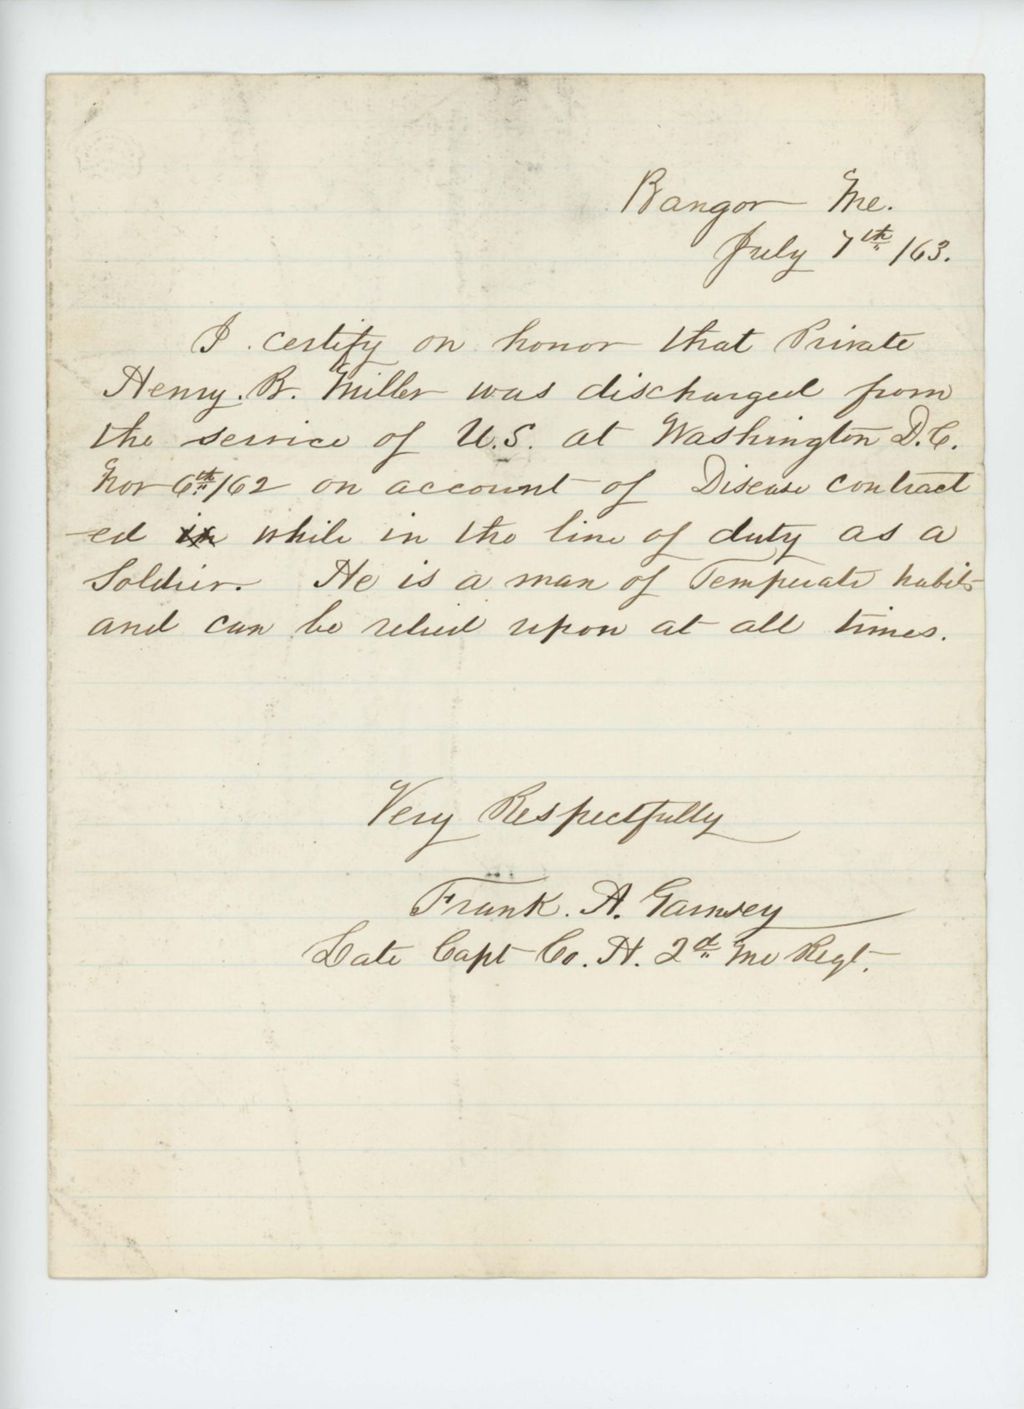 Bangor Me.
July 7th /63.
I certify on honor that Private
Henry. B. Miller was discharged from
the service of U.S. at Washington D.C.
Nov 6th /62 on account of Disease contract
-ed in while in the line of duty as a
Soldier. He is a man of Temperate habits
and can be relied upon at all times.
Very Respectfully
Frank. A. Garnsey
Late Capt Co. H. 2d Me Regt.